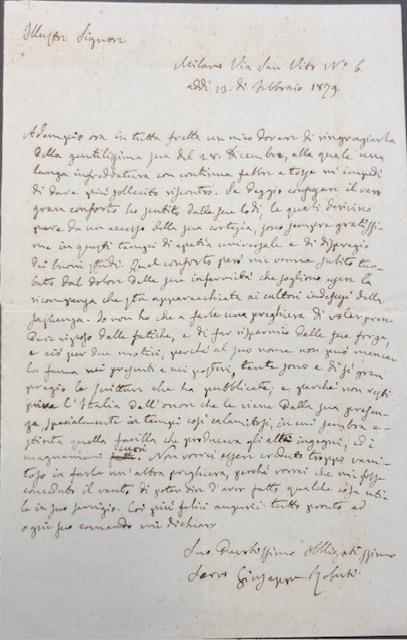 Illustre Signore
Milano Via San Vito Nº 6
addì 13. di Febbraio 1879.
Adempio ora in tutta fretta un mio dovere di ringraziarla
della gentilissima sua del 28. Dicembre, alla quale una
lunga infreddatura con continua febbre e tosse m'impedì
di dare più sollecito riscontro. Se deggio confessare il vero
gran conforto ho sentito dalle sue lodi, le quali
pure da un eccesso della sua cortesia, sono sempre gratissi-
me in questi tempi di apatia universale e di dispregio
dei buoni studj. Quel conforto però mi venne subito tur-
bato dal dolore delle sue infermità che sogliono essere la
ricompensa che sta apparecchiata ai cultori indefessi della
sapienza. Io non ho che a farle una preghiera di voler pren-
dere riposo dalle fatiche, e di far risparmio delle sue forze,
e ciò per due motivi, perché al suo nome non può mancar
la fama nei presenti e nei posteri, tante sono e di sì gran
pregio le scritture che ha pubblicate, e perché non resti
priva l'Italia dell'onore che le viene dalla sua presen-
za, specialmente in tempi così calamitosi, in cui sembra e-
stinta quella favilla che produceva gli alti ingegni, ed i
cuori
magnanimi. Non vorrei essere creduto troppo vani-
toso in farle un'altra preghiera, perché vorrei che mi fosse
conceduto il vanto di poter dire d'aver fatto qualche cosa uti-
le in suo servigio. Coi più felici augurii tutto pronto ad
ogni suo comando mi dichiaro
Suo Devotissimo Obbligatissimo
Servo Giuseppe